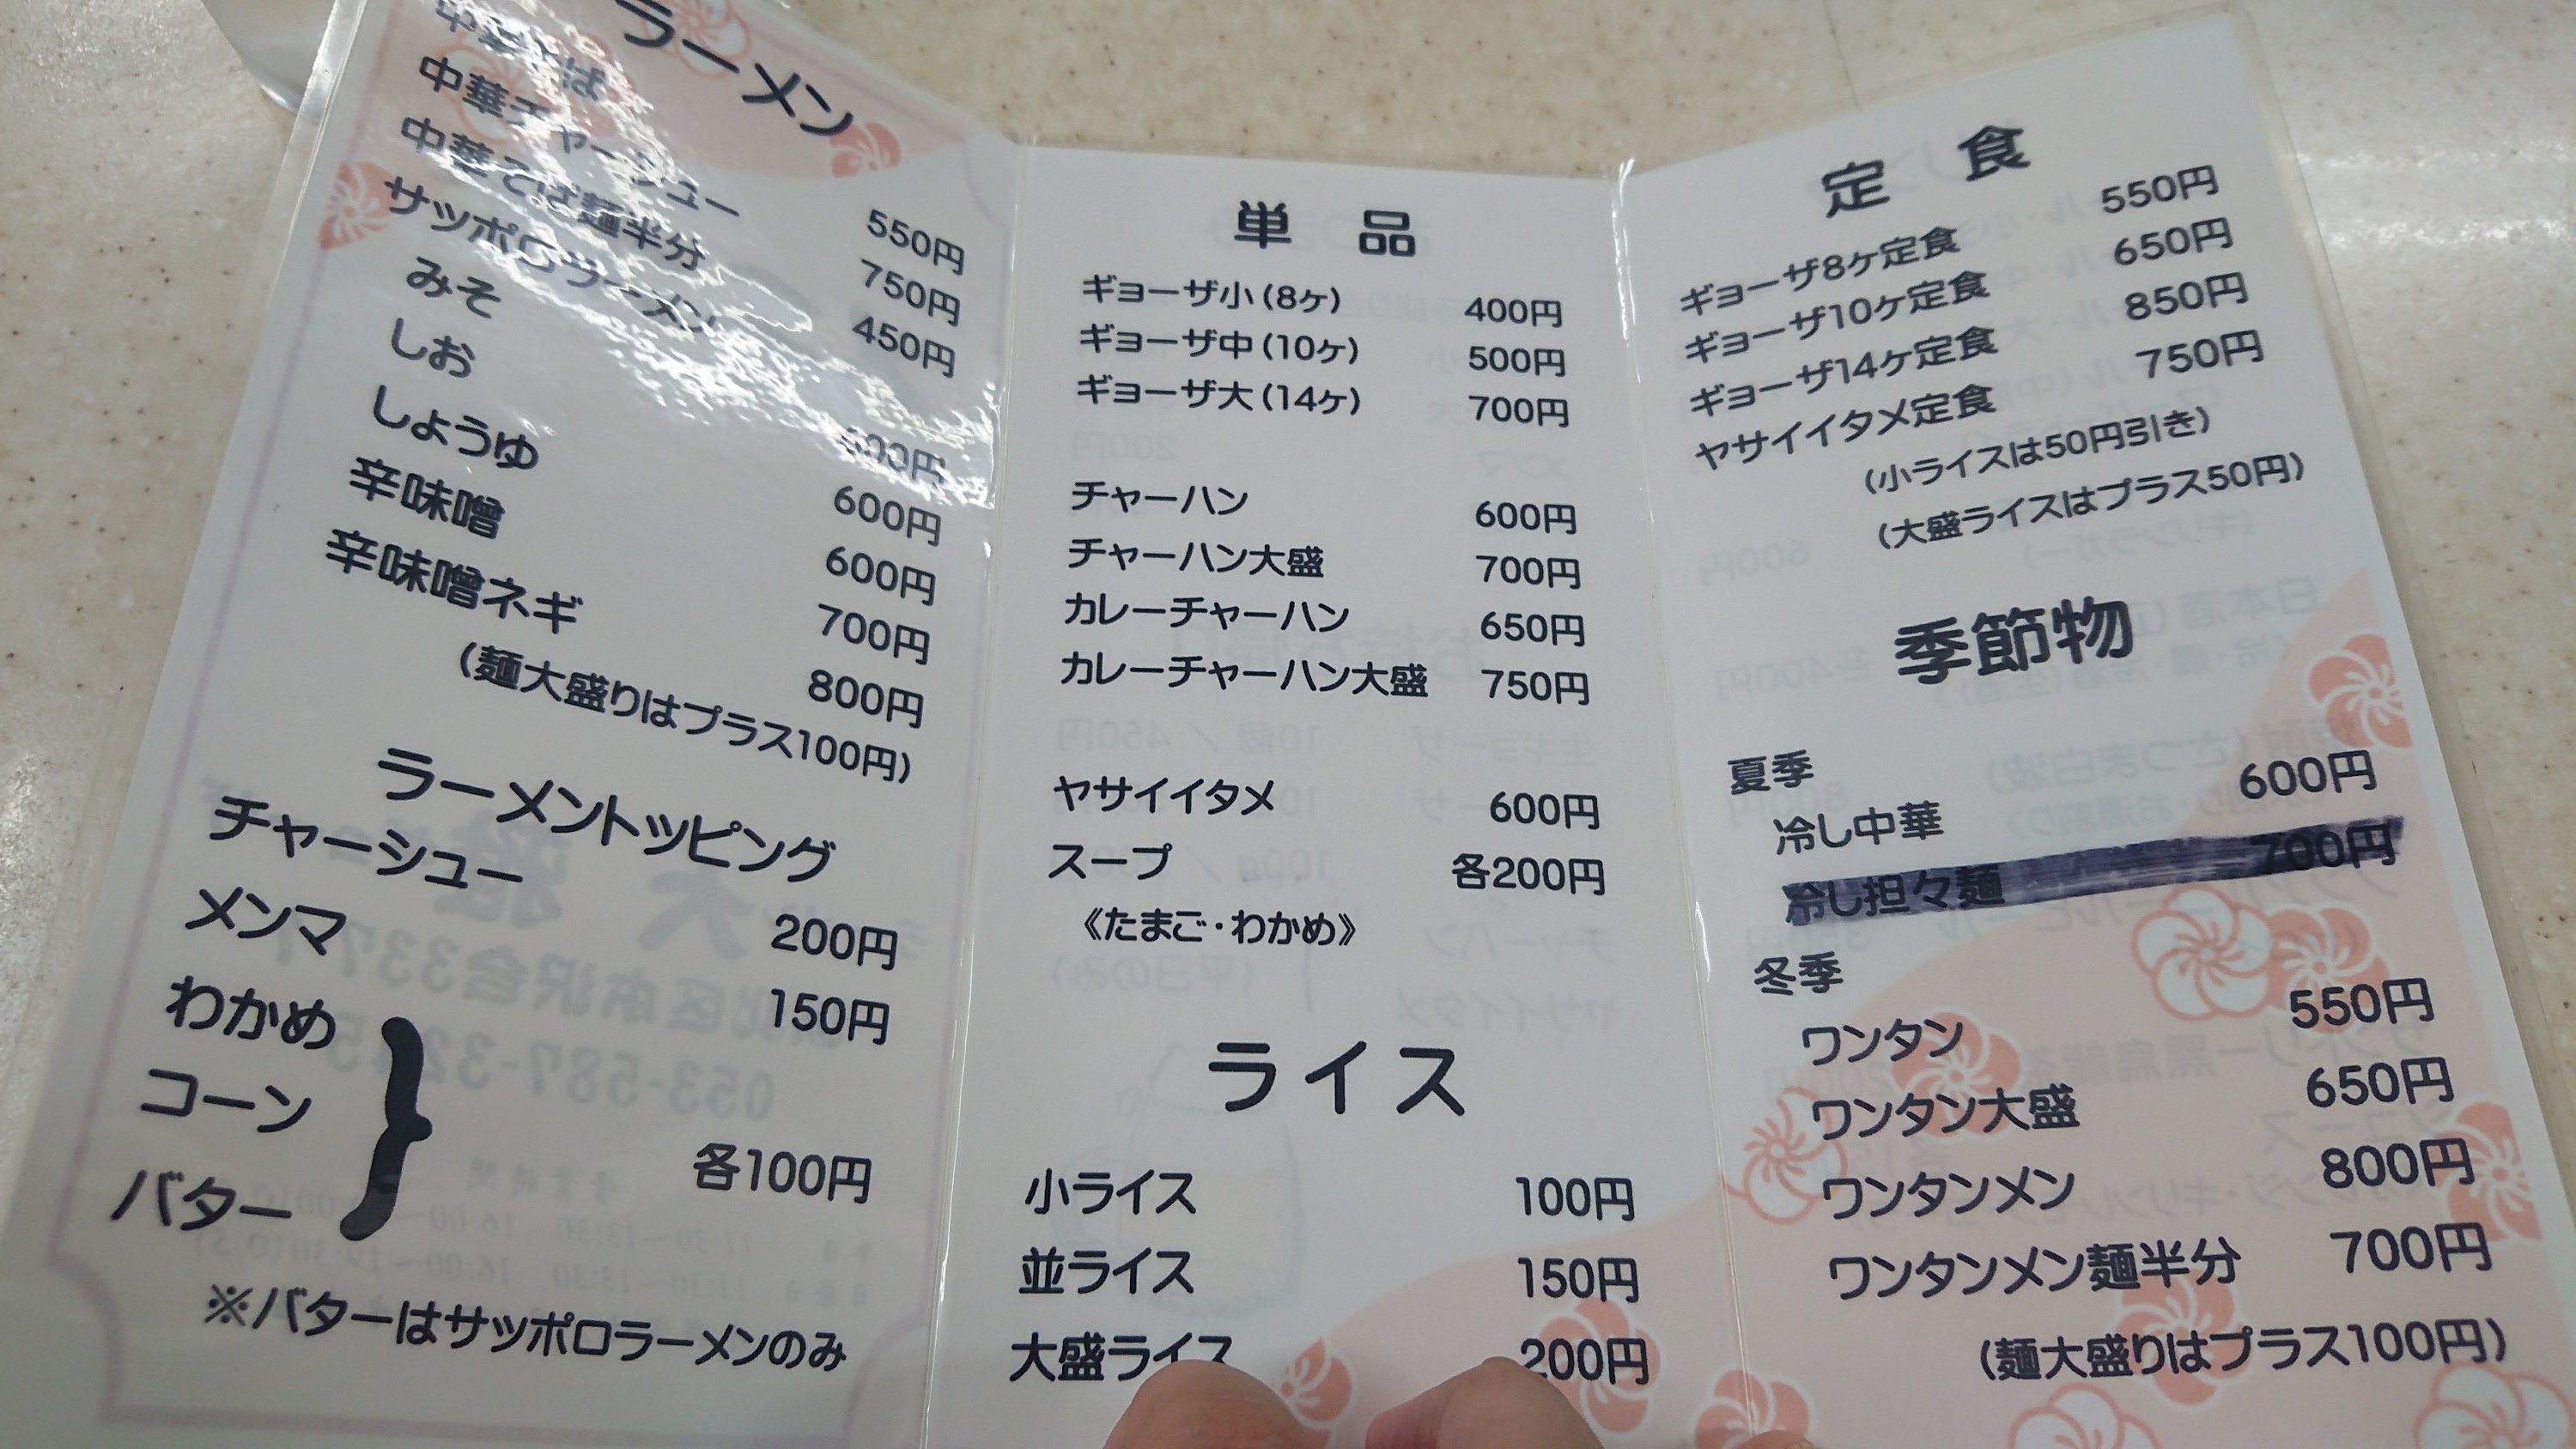 ラーメン
中華そば 550円
中華チャーシュー 750円
中華そば麺半分 450円
サッポロラーメン
みそ 600円
しお 600円
しょうゆ 600円
辛味噌 700円
辛味噌ネギ 800円
(麺大盛りはプラス100円)
ラーメントッピング
チャーシュー 200円
メンマ 150円
わかめ
コーン
バター
各100円
※バターはサッポロラーメンのみ
単品
ギョーザ小(8ヶ) 400円
ギョーザ中(10ヶ) 500円
ギョーザ大(14ヶ) 700円
チャーハン 600円
チャーハン大盛 700円
カレーチャーハン 650円
カレーチャーハン大盛 750円
ヤサイイタメ 600円
スープ 各200円
《たまご・わかめ》
ライス
小ライス 100円
並ライス 150円
大盛ライス 200円
定食
ギョーザ8ヶ定食 550円
ギョーザ10ヶ定食 650円
ギョーザ14ヶ定食 850円
ヤサイイタメ定食 750円
(小ライスは50円引き)
(大盛ライスはプラス50円)
季節物
夏季
冷し中華 600円
冷し担々麺 700円
冬季
ワンタン 550円
ワンタン大盛 650円
ワンタンメン 800円
ワンタンメン麺半分 700円
(麺大盛りはプラス100円)